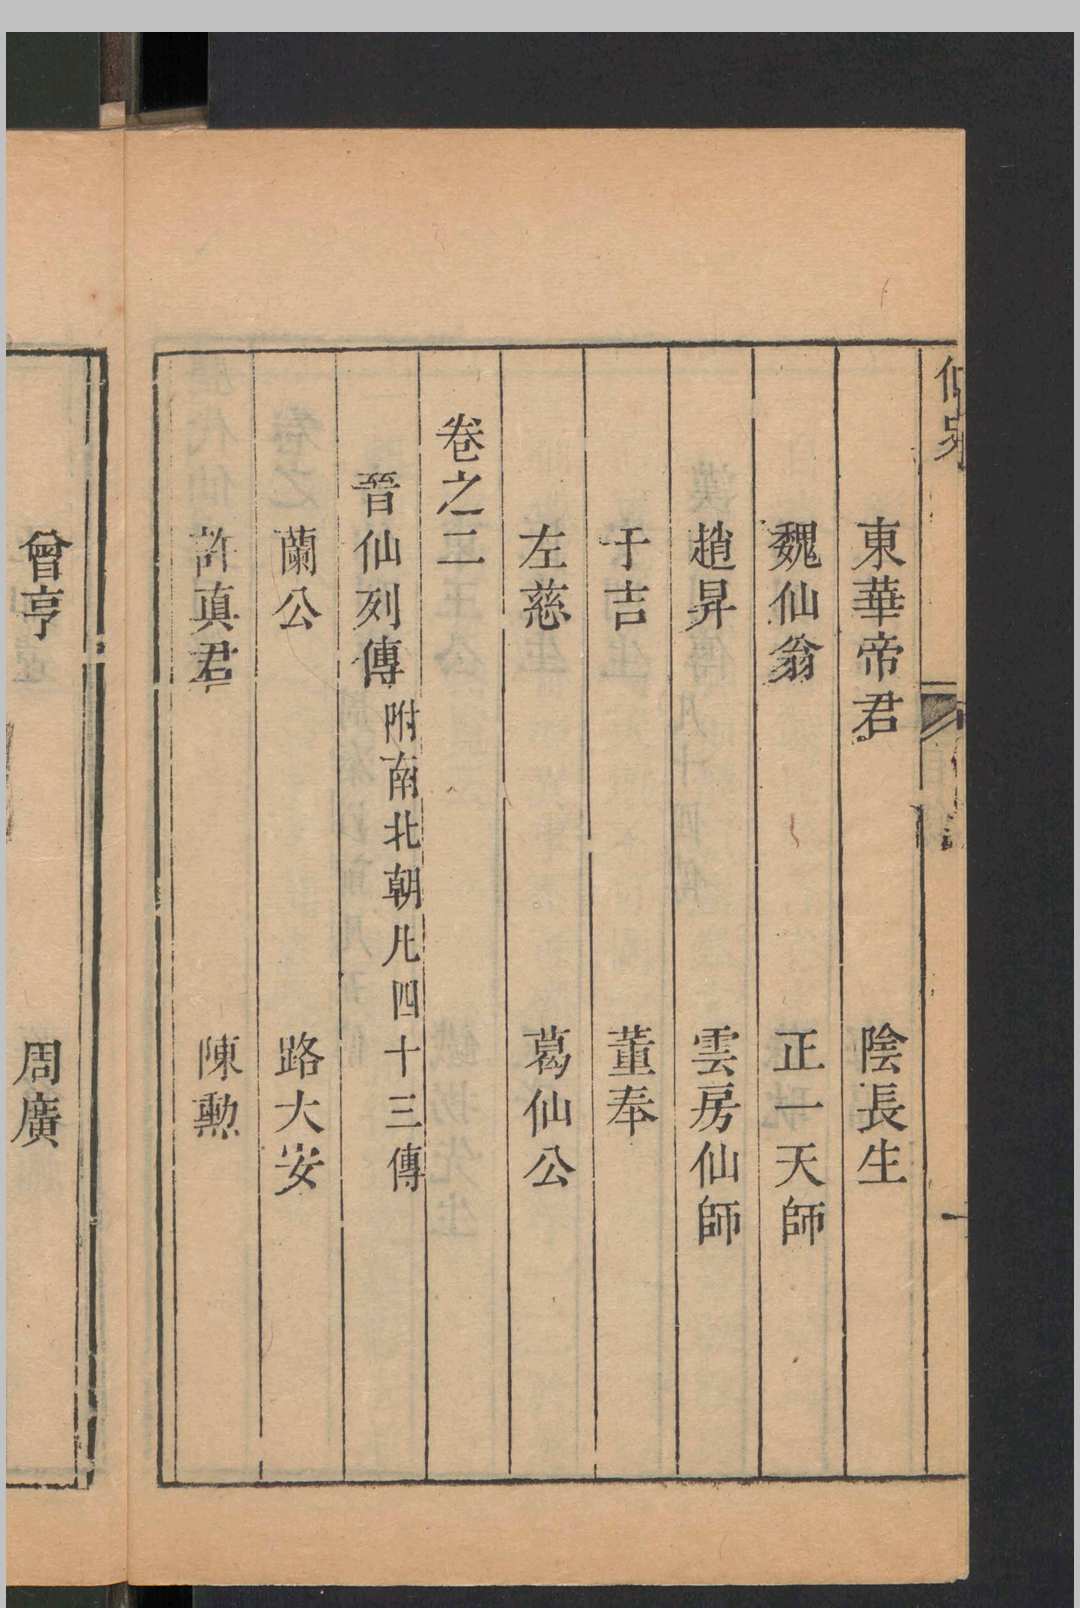 東華帝君　陰長生
魏仙翁　正一天師
趙昇　雲房仙師
于吉　董奉
左慈　葛仙公
卷之二
晉仙列傳附南北朝凡四十三傳
蘭公　路大安
許眞君　陳勲
曾亨　周廣